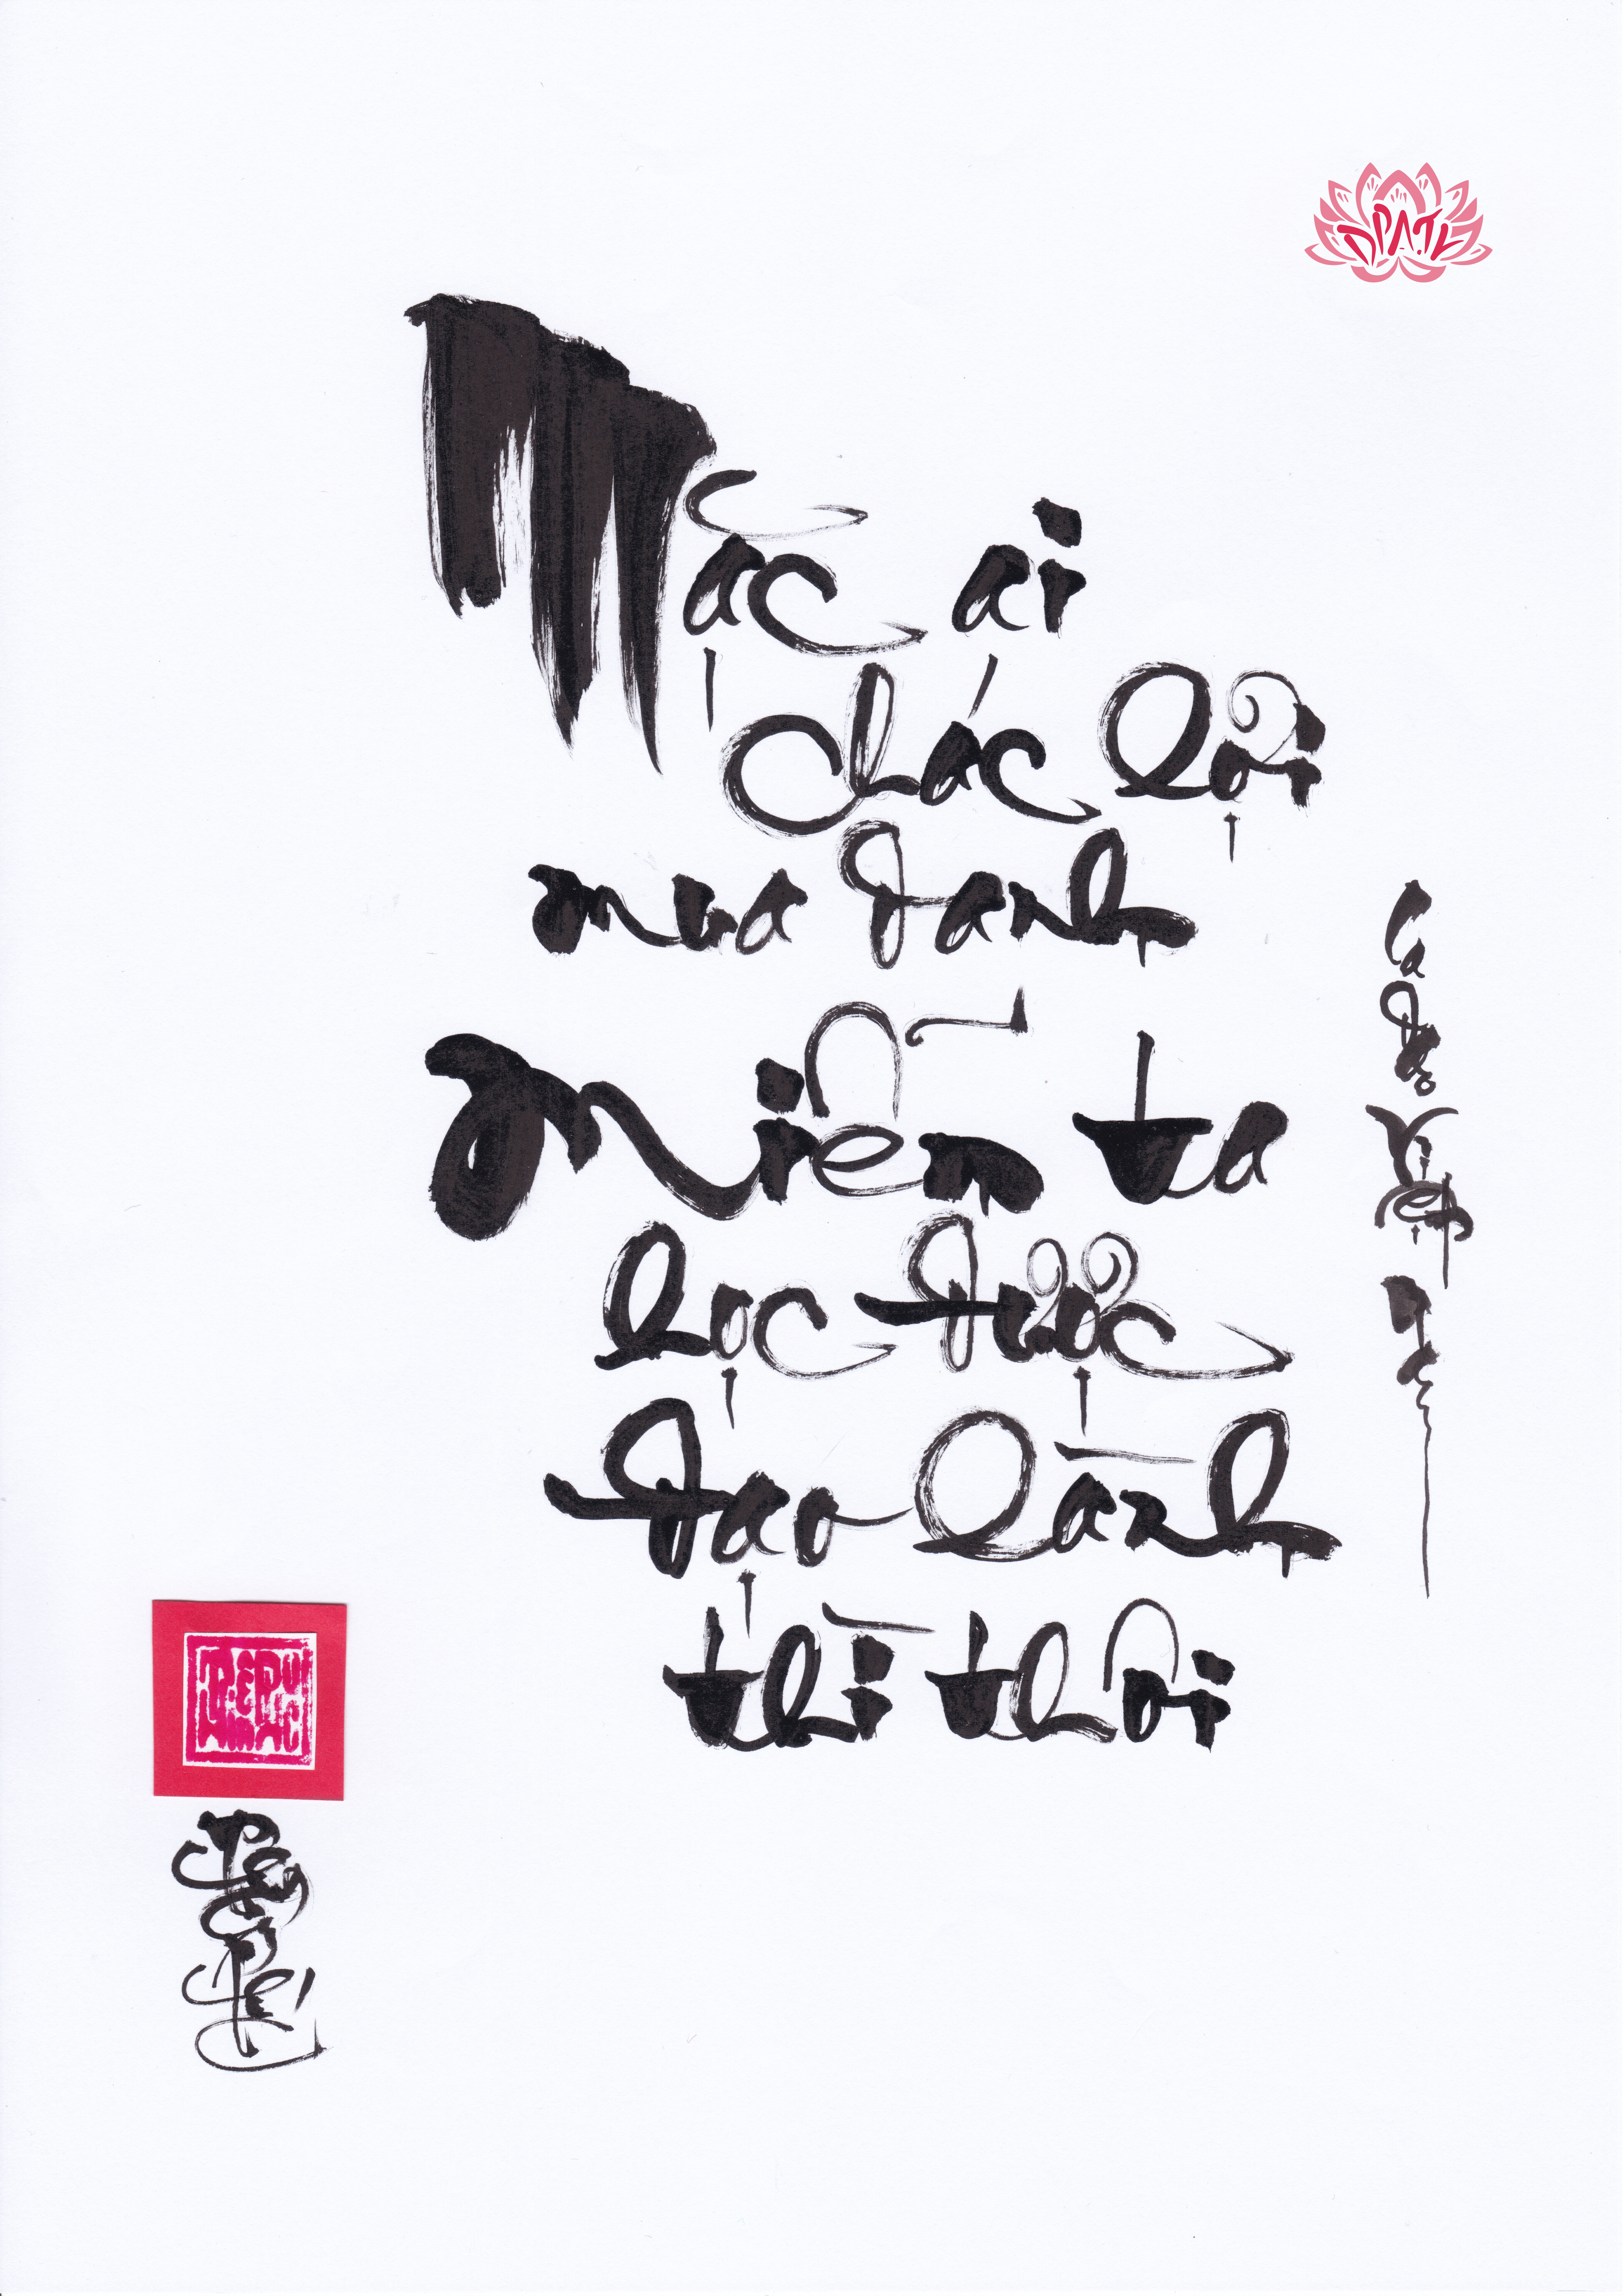 Mặc ai
chác lợi
mua danh
Miễn ta
học được
đạo lành
thì thôi
Ca dao Việt Nam